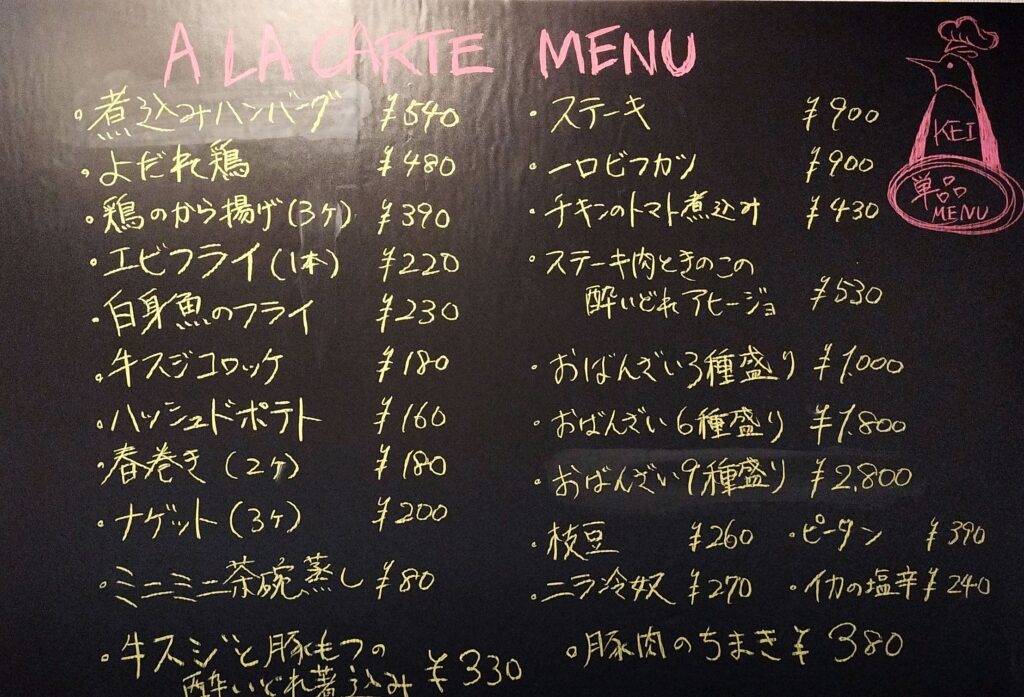 A LA CARTE MENU
・煮込みハンバーグ ¥540
・よだれ鶏 ¥480
・鶏のから揚げ(3ヶ) ¥390
・エビフライ(1本) ¥220
・白身魚のフライ ¥230
・牛スジコロッケ ¥180
・ハッシュドポテト ¥160
・春巻き(2ヶ) ¥180
・ナゲット(3ヶ) ¥200
・ミニミニ茶碗蒸し ¥80
・牛スジと豚もつの
酔いどれ煮込み ¥330
・ステーキ ¥900
・一口ビフカツ ¥900
・チキンのトマト煮込み ¥430
・ステーキ肉ときのこの
酔いどれアヒージョ ¥530
・おばんざい3種盛り ¥1,000
・おばんざい6種盛り ¥1,800
・おばんざい9種盛り ¥2,800
・枝豆 ¥260 ・ピータン ¥390
・ニラ冷奴 ¥270 ・イカの塩辛 ¥240
・豚肉のちまき ¥380
KEI
単品
MENU